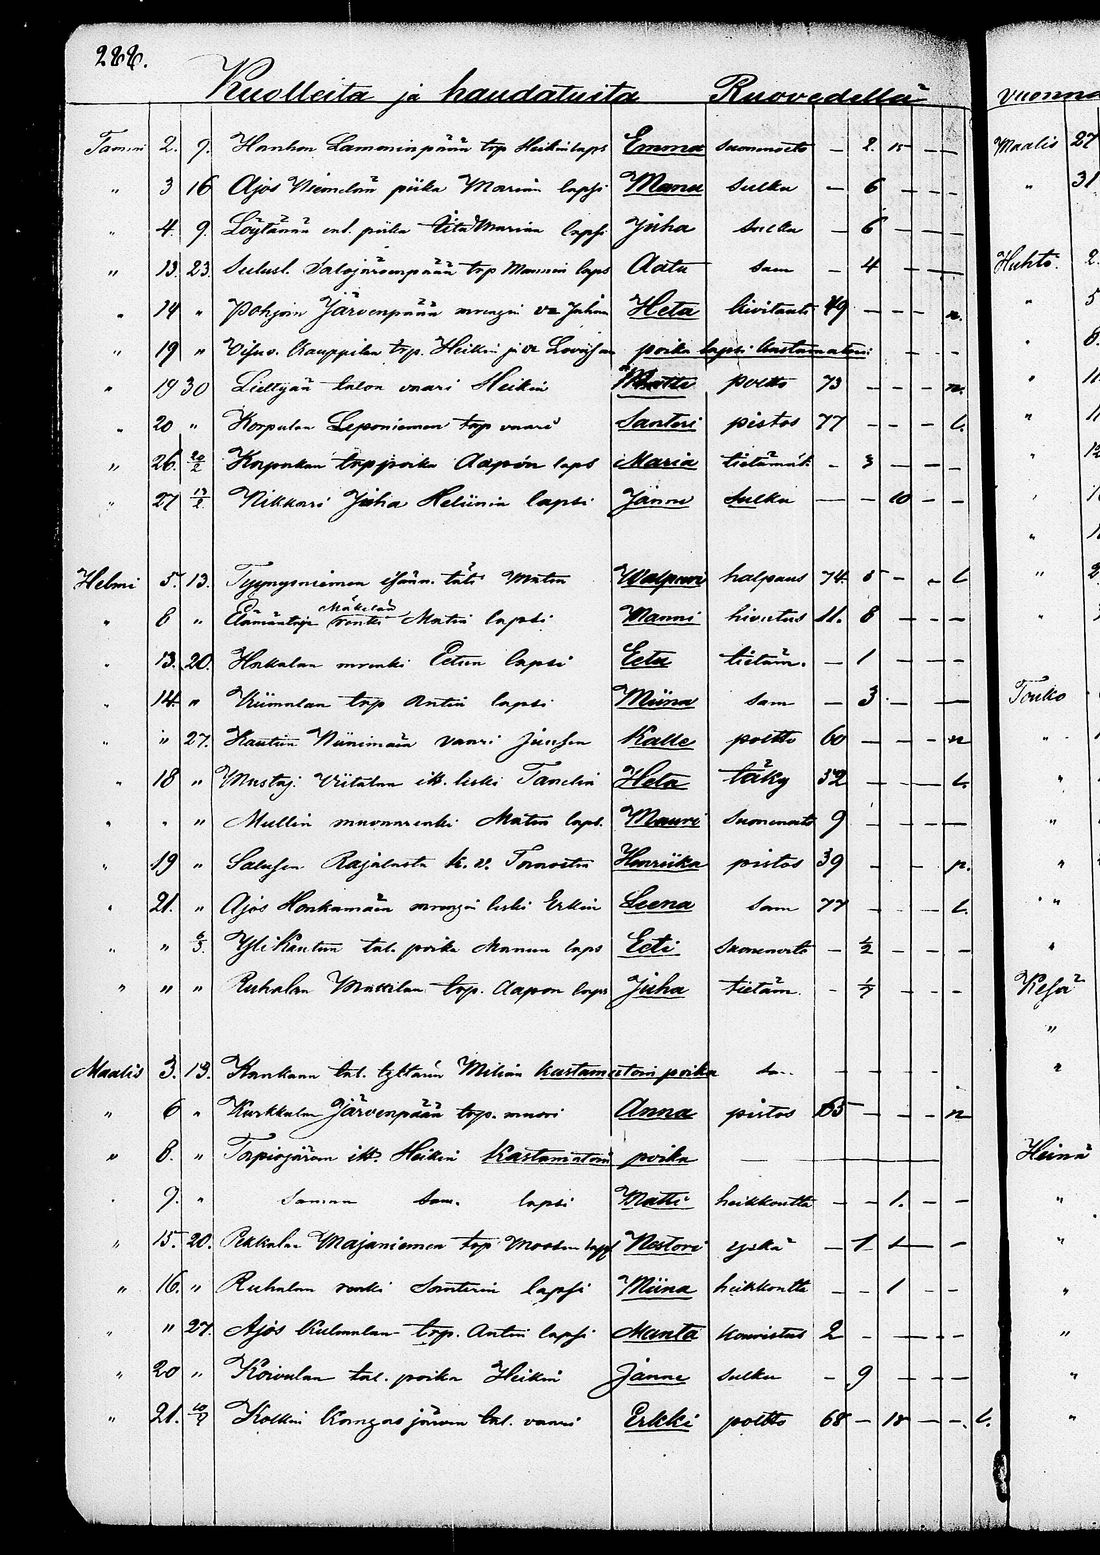 288.
Kuolleita ja haudatuita Ruovedellä
Tammi 2. 9. Hanhon Lamminpään trp Heikin laps Emma suonenveto — 2. 15 — —
" 3 16 Ajos Niemelän piika Marian lapsi Manu sulku — 6 — — —
" 4. 9. Löytänän ent. piika Marian lapsi Juha sulku — 6 — — —
" 13. 23. Salojärvenpään trp Mannin laps Aatu sam — 4 — —
" 14 " Pohjoin Järvenpään rengin va Juhan Heta kivitauti 49 — — — n.
" 19 " Kauppilan trp. Heikin ja va Loviisan poika lapsi kastamatoin — — —
" 19 30 talon vaari Heikin Matti poltto 73 — — — n.
" 20 " Korpulan Leponiemen trp vaari Santeri pistos 77 — — — l.
" 26. 20/2 trp poika Aapon laps Maria tietämät. — 3 — — —
" 27 13/2 Nikkari Juha Heliinin lapsi Janne sulku — — 10 — —
Helmi 5. 13. Tyynysniemen isänn. täti Matin Walpuri halpaus 74. 5 — — l.
" 6 " Mäkelän
renki Matin lapsi Manni hivutus 11. 8 — — —
" 13. 20. Hakalan renki Eetun lapsi Eetu tietäm. — 1 — — —
" 14. " Viimalan trp Antin lapsi Miina sam — 3 — — —
" " 27. Kautun Niinimäen vaari Jussin Kalle poltto 60 — — — n
" 18 " Mustaj. Viitalan itk. leski Tanelin Heta täky 32 — — — l.
" " " Mullin muonarenki Matin laps. Mauri suonenveto 9 — — — —
" 19 " Salusen Rajalasta k. v. Henriika pistos 39 — — — p.
" 21. " Ajos Honkamäen rengin leski Erkin Leena sam 77 — — — l.
" " 6/3. Yli Kautun tal. poika Manun laps Eeti suonenveto — 1/2 — — —
" " " Ruhalan Mattilan trp. Aapon laps Juha tietäm. — 1/7 — — —
Maalis 3. 13. Kankaan tal. tyttären Miliian kastamatoin poika sa. — — — — —
" 6 " Kurkkulan Järvenpään trp. muori Anna pistos 65 — — — n
" 8. " Tarpiajärven itk. Heikin kastamatoin poika —
" 9. " saman sam. lapsi Matti heikkoutta — — 1. — —
" 15. 20. Pekkalan Majaniemen trp Moosen lapsi Nestori yskä — 1 1 — —
" 16. " Ruhalan renki Santerin lapsi Miina heikkoutta — — 1 — —
" " 27. Ajos Kulmalan trp. Antin lapsi Manta kouristus 2 — — — —
" 20 " Koivulan tal. poika Heikin Janne sulku — 9 — — —
" 21. 10/4 Kolkin Kangasjärven tal. vaari Erkki poltto 68 — 18 — — l.
vuonna
Maalis 27
" 31
Huhti. 2.
Touko
Kesä
Heinä